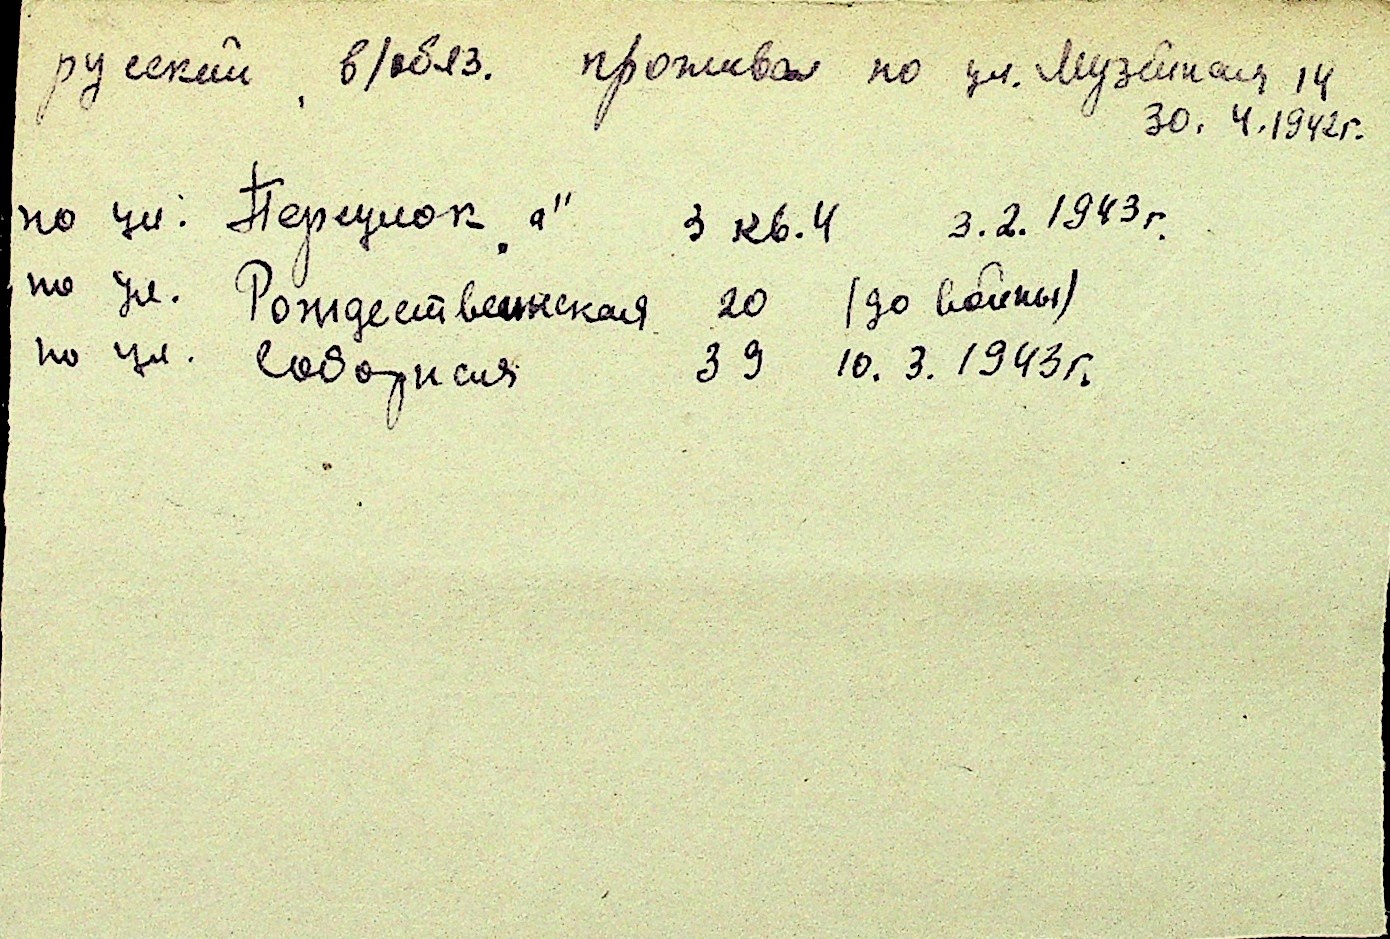 русский, в/обяз. проживал по ул. Музейная 14
30. 4. 1942г.
по ул: Переулок „а" 3 кв. 4 3. 2. 1943г.
по ул. Рождественская 20 (до войны)
по ул. Соборная 39 10. 3. 1943г.